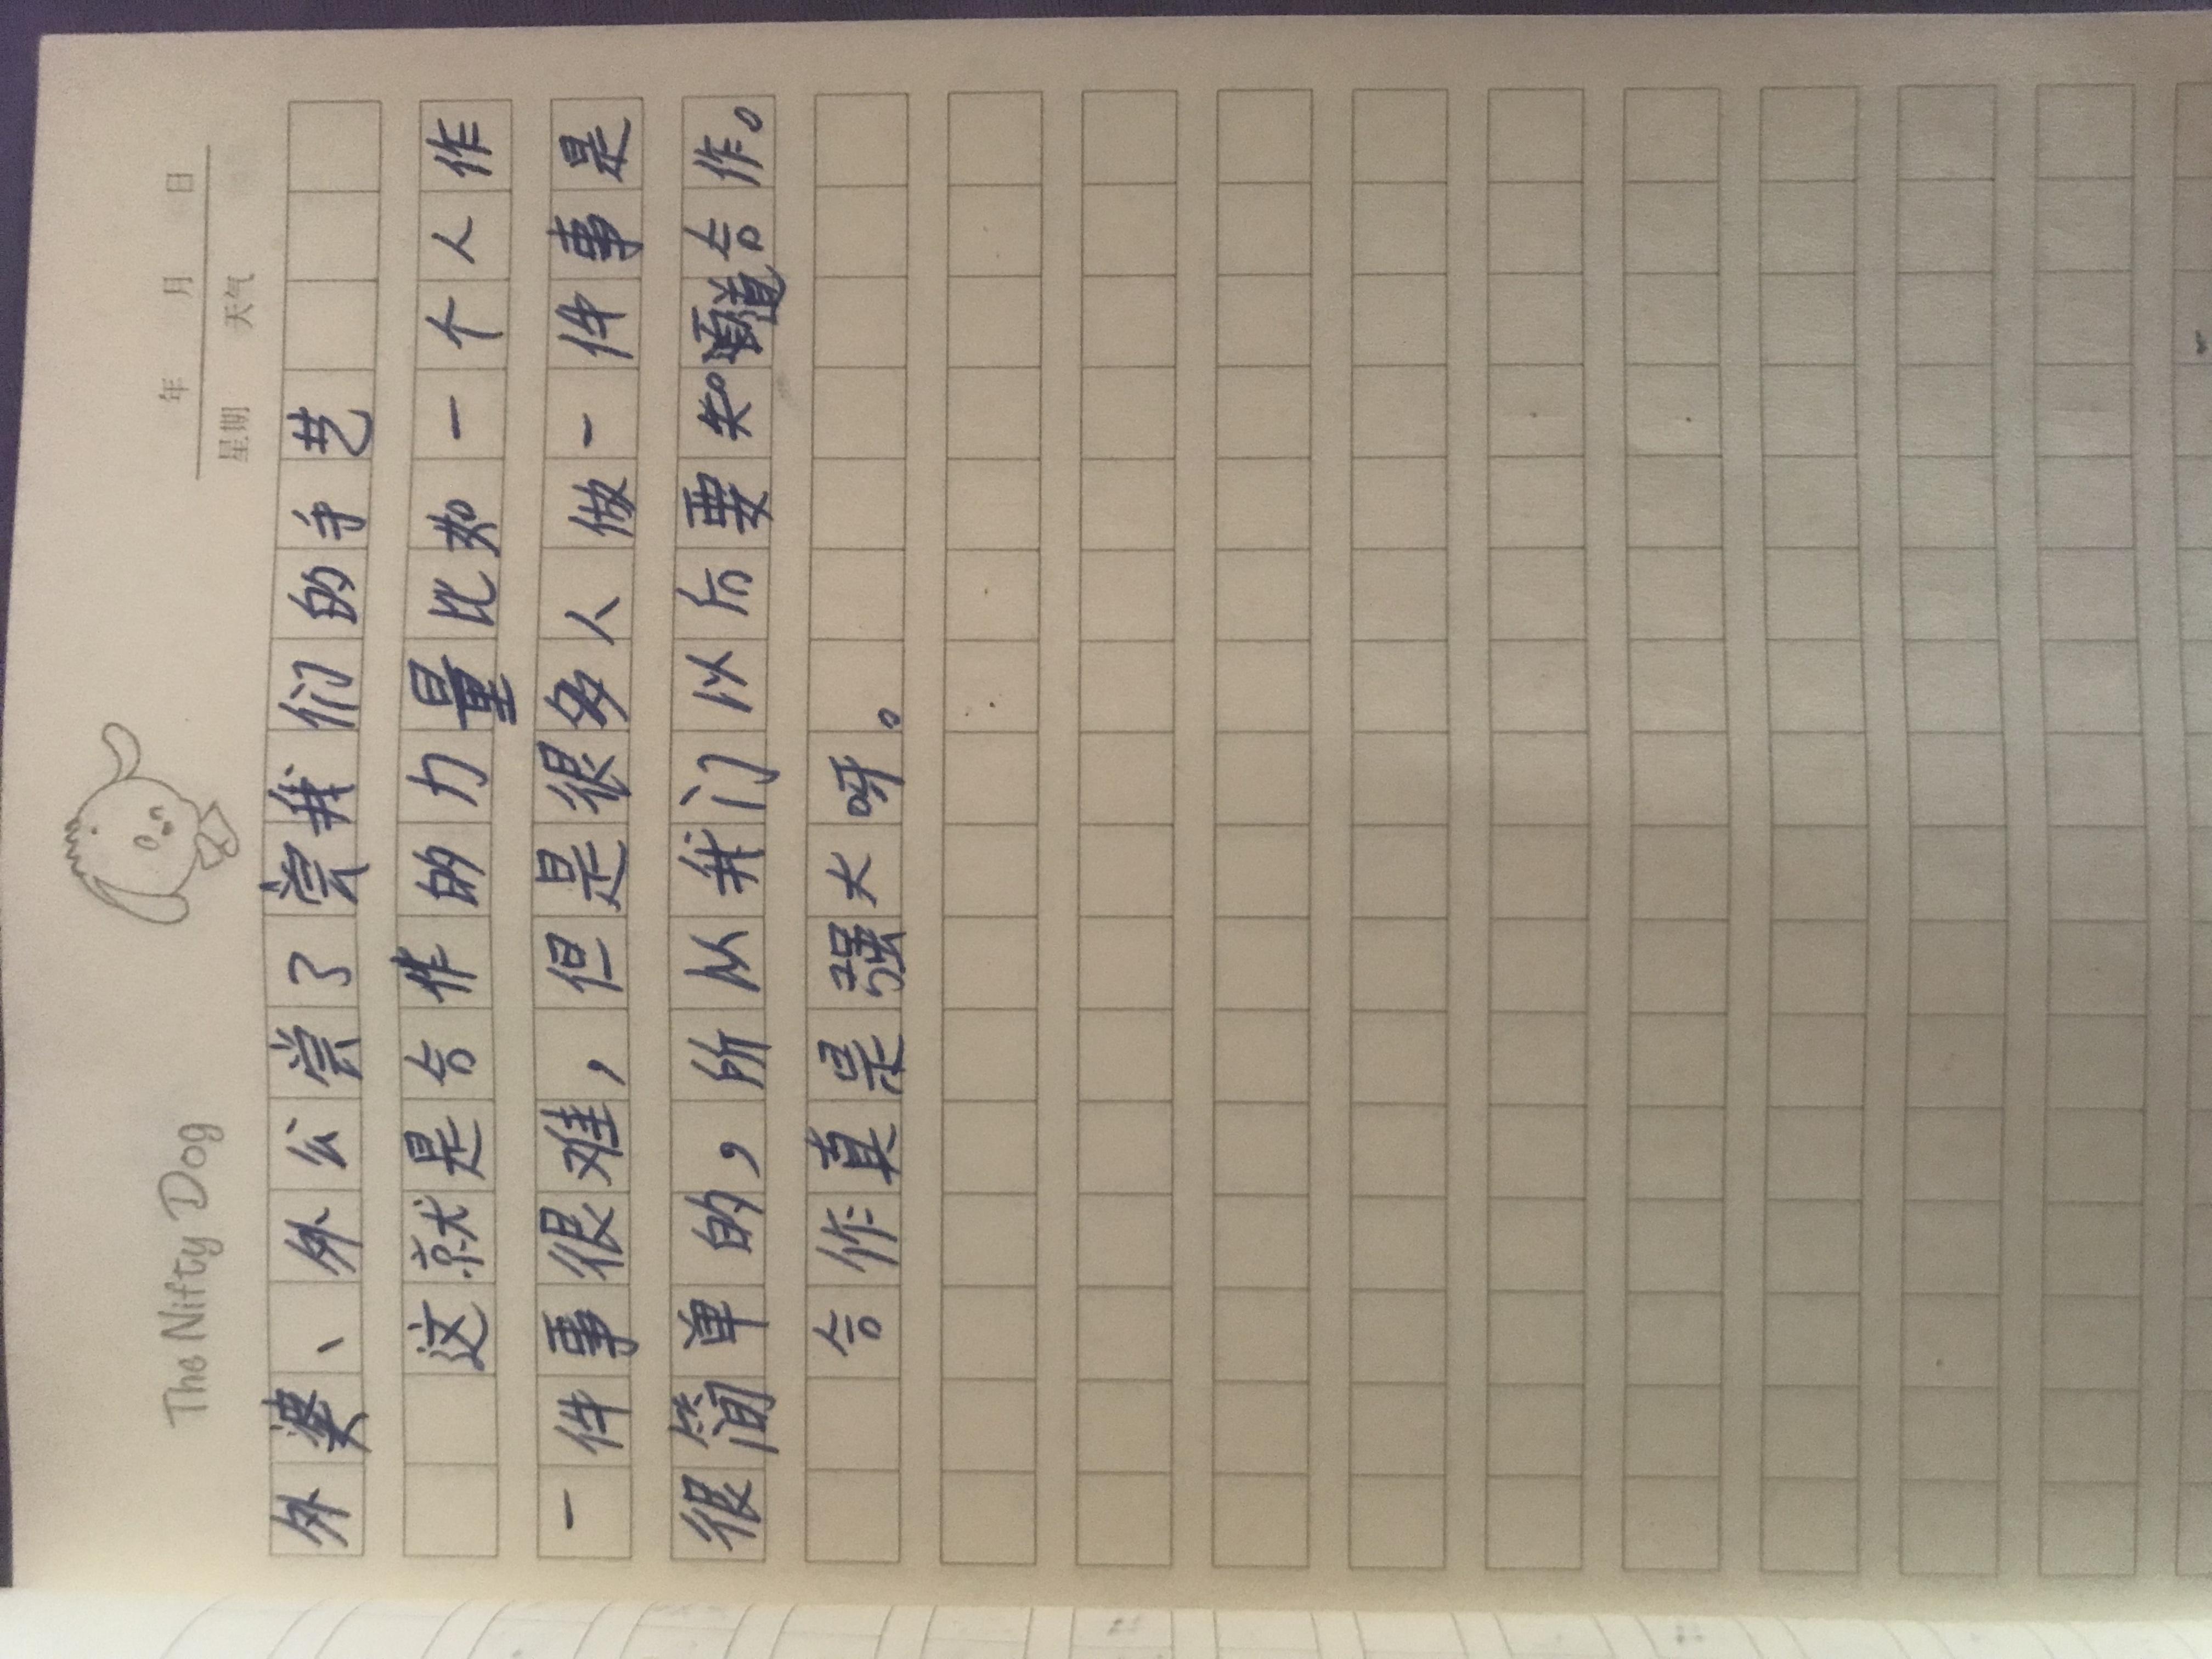 The Nifty Dog
年 月 日
星期 天气
外婆、外公尝了尝我们的手艺
这就是合作的力量比如一个人作
一件事很难，但是很多人做一件事是
很简单的，所以我门以后要知道合作。
合作真是强大呀。